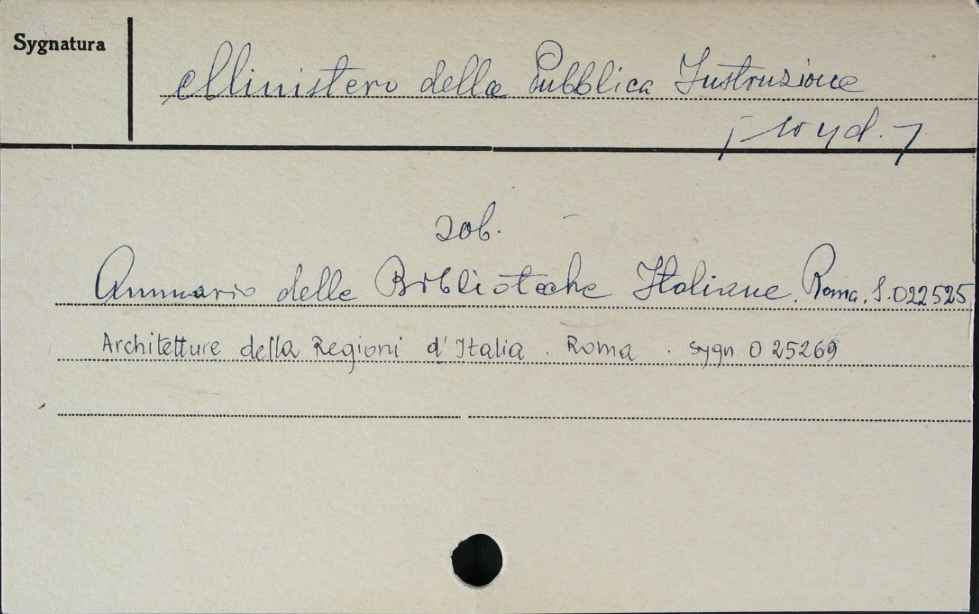 Sygnatura
Ministero della Pubblica Instruzione
[wyd.]
zob.
Annuario delle Biblioteche Italiane. Roma. S.022525
Architetture della Regioni d'Italia. Roma. sygn O 25269